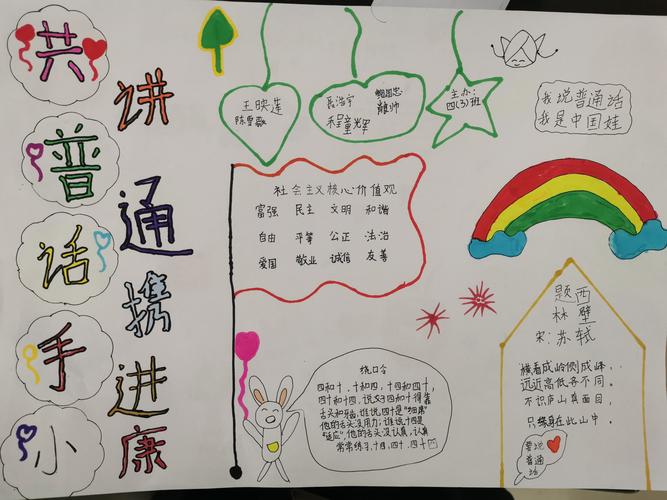 共讲
普通
话携
手进
小康
王映莲
陈雪
浩宇
童光辉
帅
主办:
四(3)班
我说普通话
我是中国娃
社会主义核心价值观
富强 民主 文明 和谐
自由 平等 公正 法治
爱国 敬业 诚信 友善
绕口令
四和十,十和四,十四和四十,
四十和十四,说好四和十得靠
舌头和牙齿,谁说四十是"细席"
他的舌头没用力;谁说十四是
"适应",他的舌头没认真,认真
常常练习,十四、四十、四
题西
林壁
宋:苏轼
横看成岭侧成峰,
远近高低各不同。
不识庐山真面目,
只缘身在此山中。
要说
普通
话